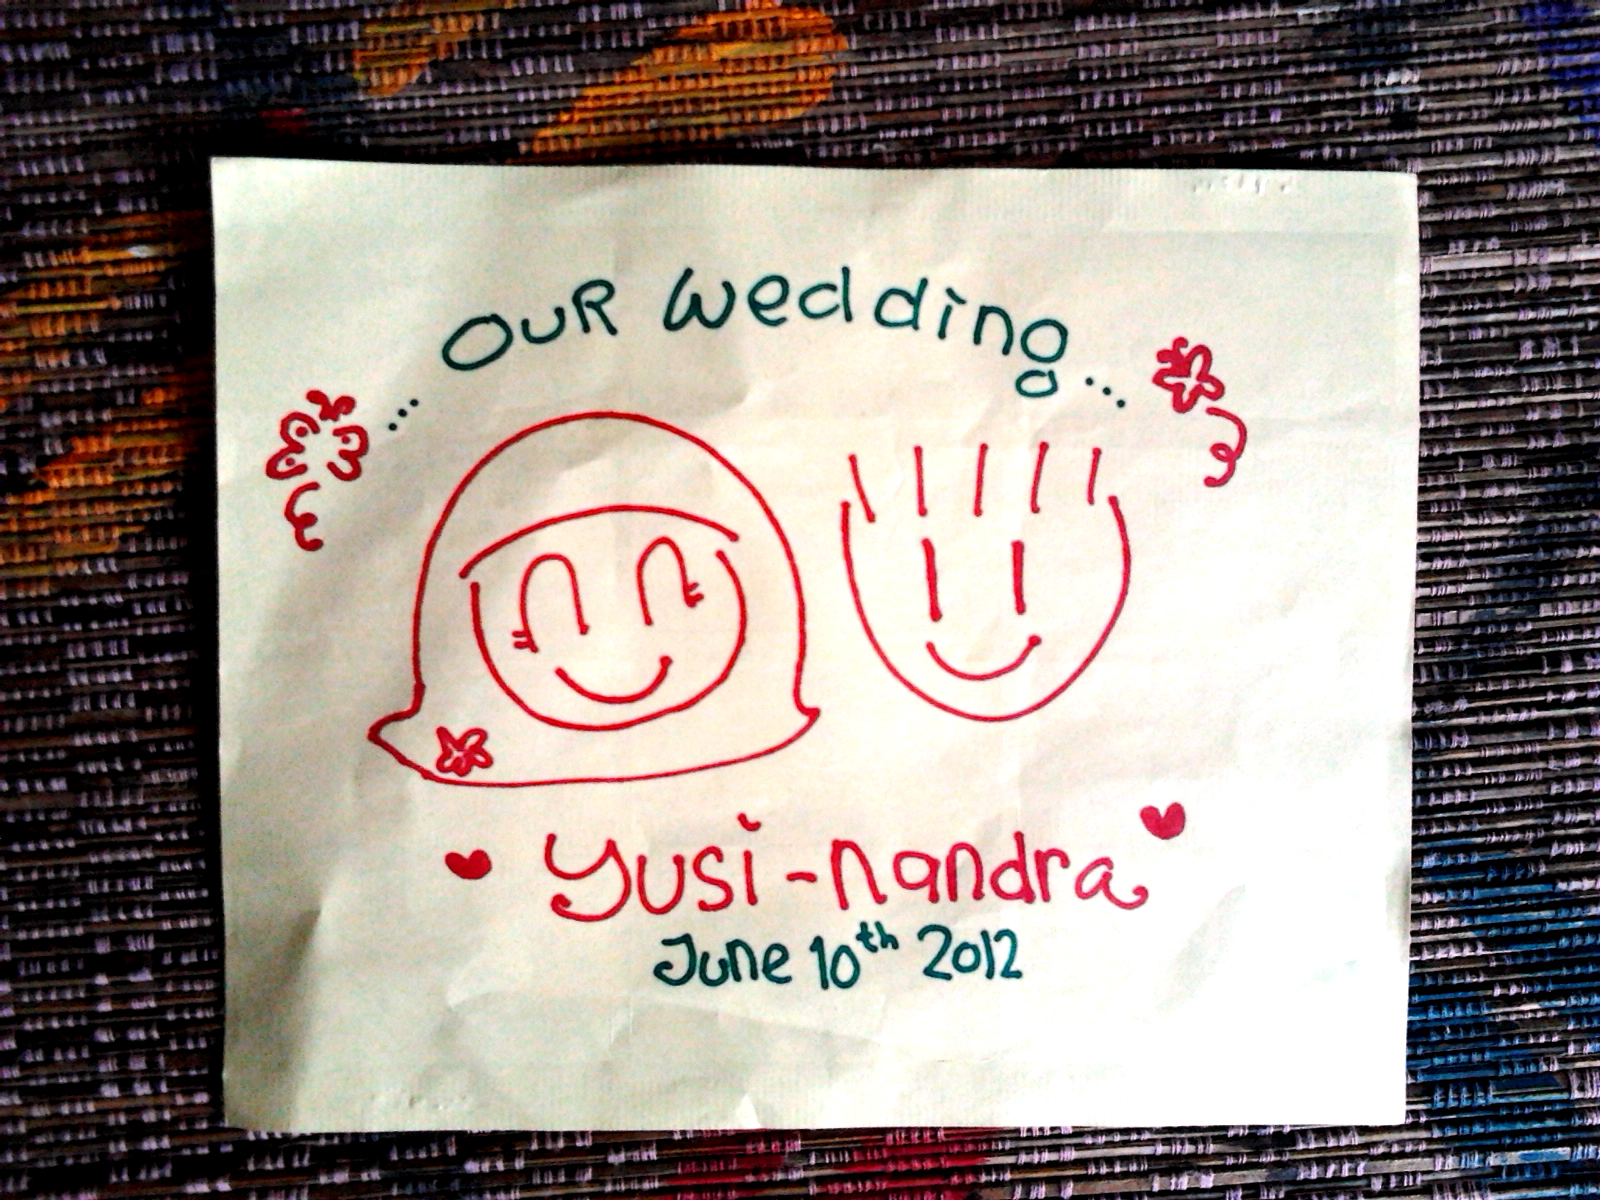 ... Our wedding ...
Yusi - Nandra
June 10th 2012